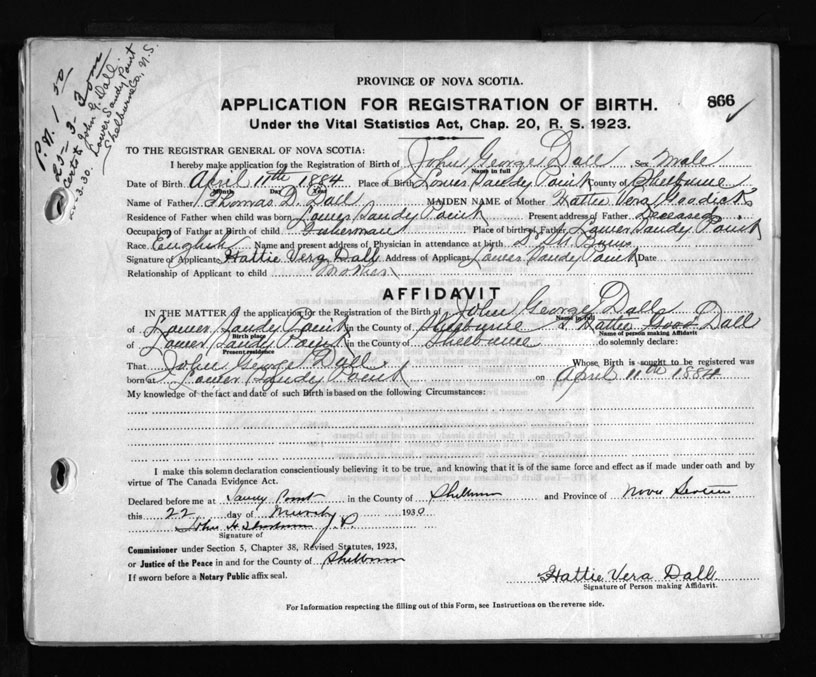 P.N. 1 50
25-3-30
Cert to John G. Dall
3.30. Lower Sandy Point
Shelburne Co, N.S.
PROVINCE OF NOVA SCOTIA.
APPLICATION FOR REGISTRATION OF BIRTH. 866
Under the Vital Statistics Act, Chap. 20, R. S. 1923.
TO THE REGISTRAR GENERAL OF NOVA SCOTIA:
I hereby make application for the Registration of Birth of John George Dall Sex Male
Name in full
Date of Birth April 11th 1884 Place of Birth Lower Sandy Point County of Shelburne
Month Day Year
Name of Father Thomas D. Dall MAIDEN NAME of Mother Hattie Vera
Residence of Father when child was born Lower Sandy Point Present address of Father Deceased
Occupation of Father at Birth of child Fisherman Place of birth of Father Lower Sandy Point
Race English Name and present address of Physician in attendance at birth
Signature of Applicant Hattie Vera Dall Address of Applicant Lower Sandy Point Date
Relationship of Applicant to child Mother
AFFIDAVIT
IN THE MATTER of the application for the Registration of the Birth of John George Dall
Name in full
of Lower Sandy Point in the County of Shelburne I Hattie Dall
Birth place Name of person making Affidavit
of Lower Sandy Point in the County of Shelburne do solemnly declare:
Present residence
That John George Dall Whose Birth is sought to be registered was
born at Lower Sandy Point on April 11th 1884
My knowledge of the fact and date of such Birth is based on the following Circumstances:
I make this solemn declaration conscientiously believing it to be true, and knowing that it is of the same force and effect as if made under oath and by
virtue of The Canada Evidence Act.
Declared before me at Sandy Point in the County of Shelburne and Province of Nova Scotia
this 22 day of March 1930
John H J.P.
Signature of
Commissioner under Section 5, Chapter 38, Revised Statutes, 1923,
or Justice of the Peace in and for the County of Shelburne
If sworn before a Notary Public affix seal.
Hattie Vera Dall
Signature of Person making Affidavit.
For Information respecting the filling out of this Form, see Instructions on the reverse side.